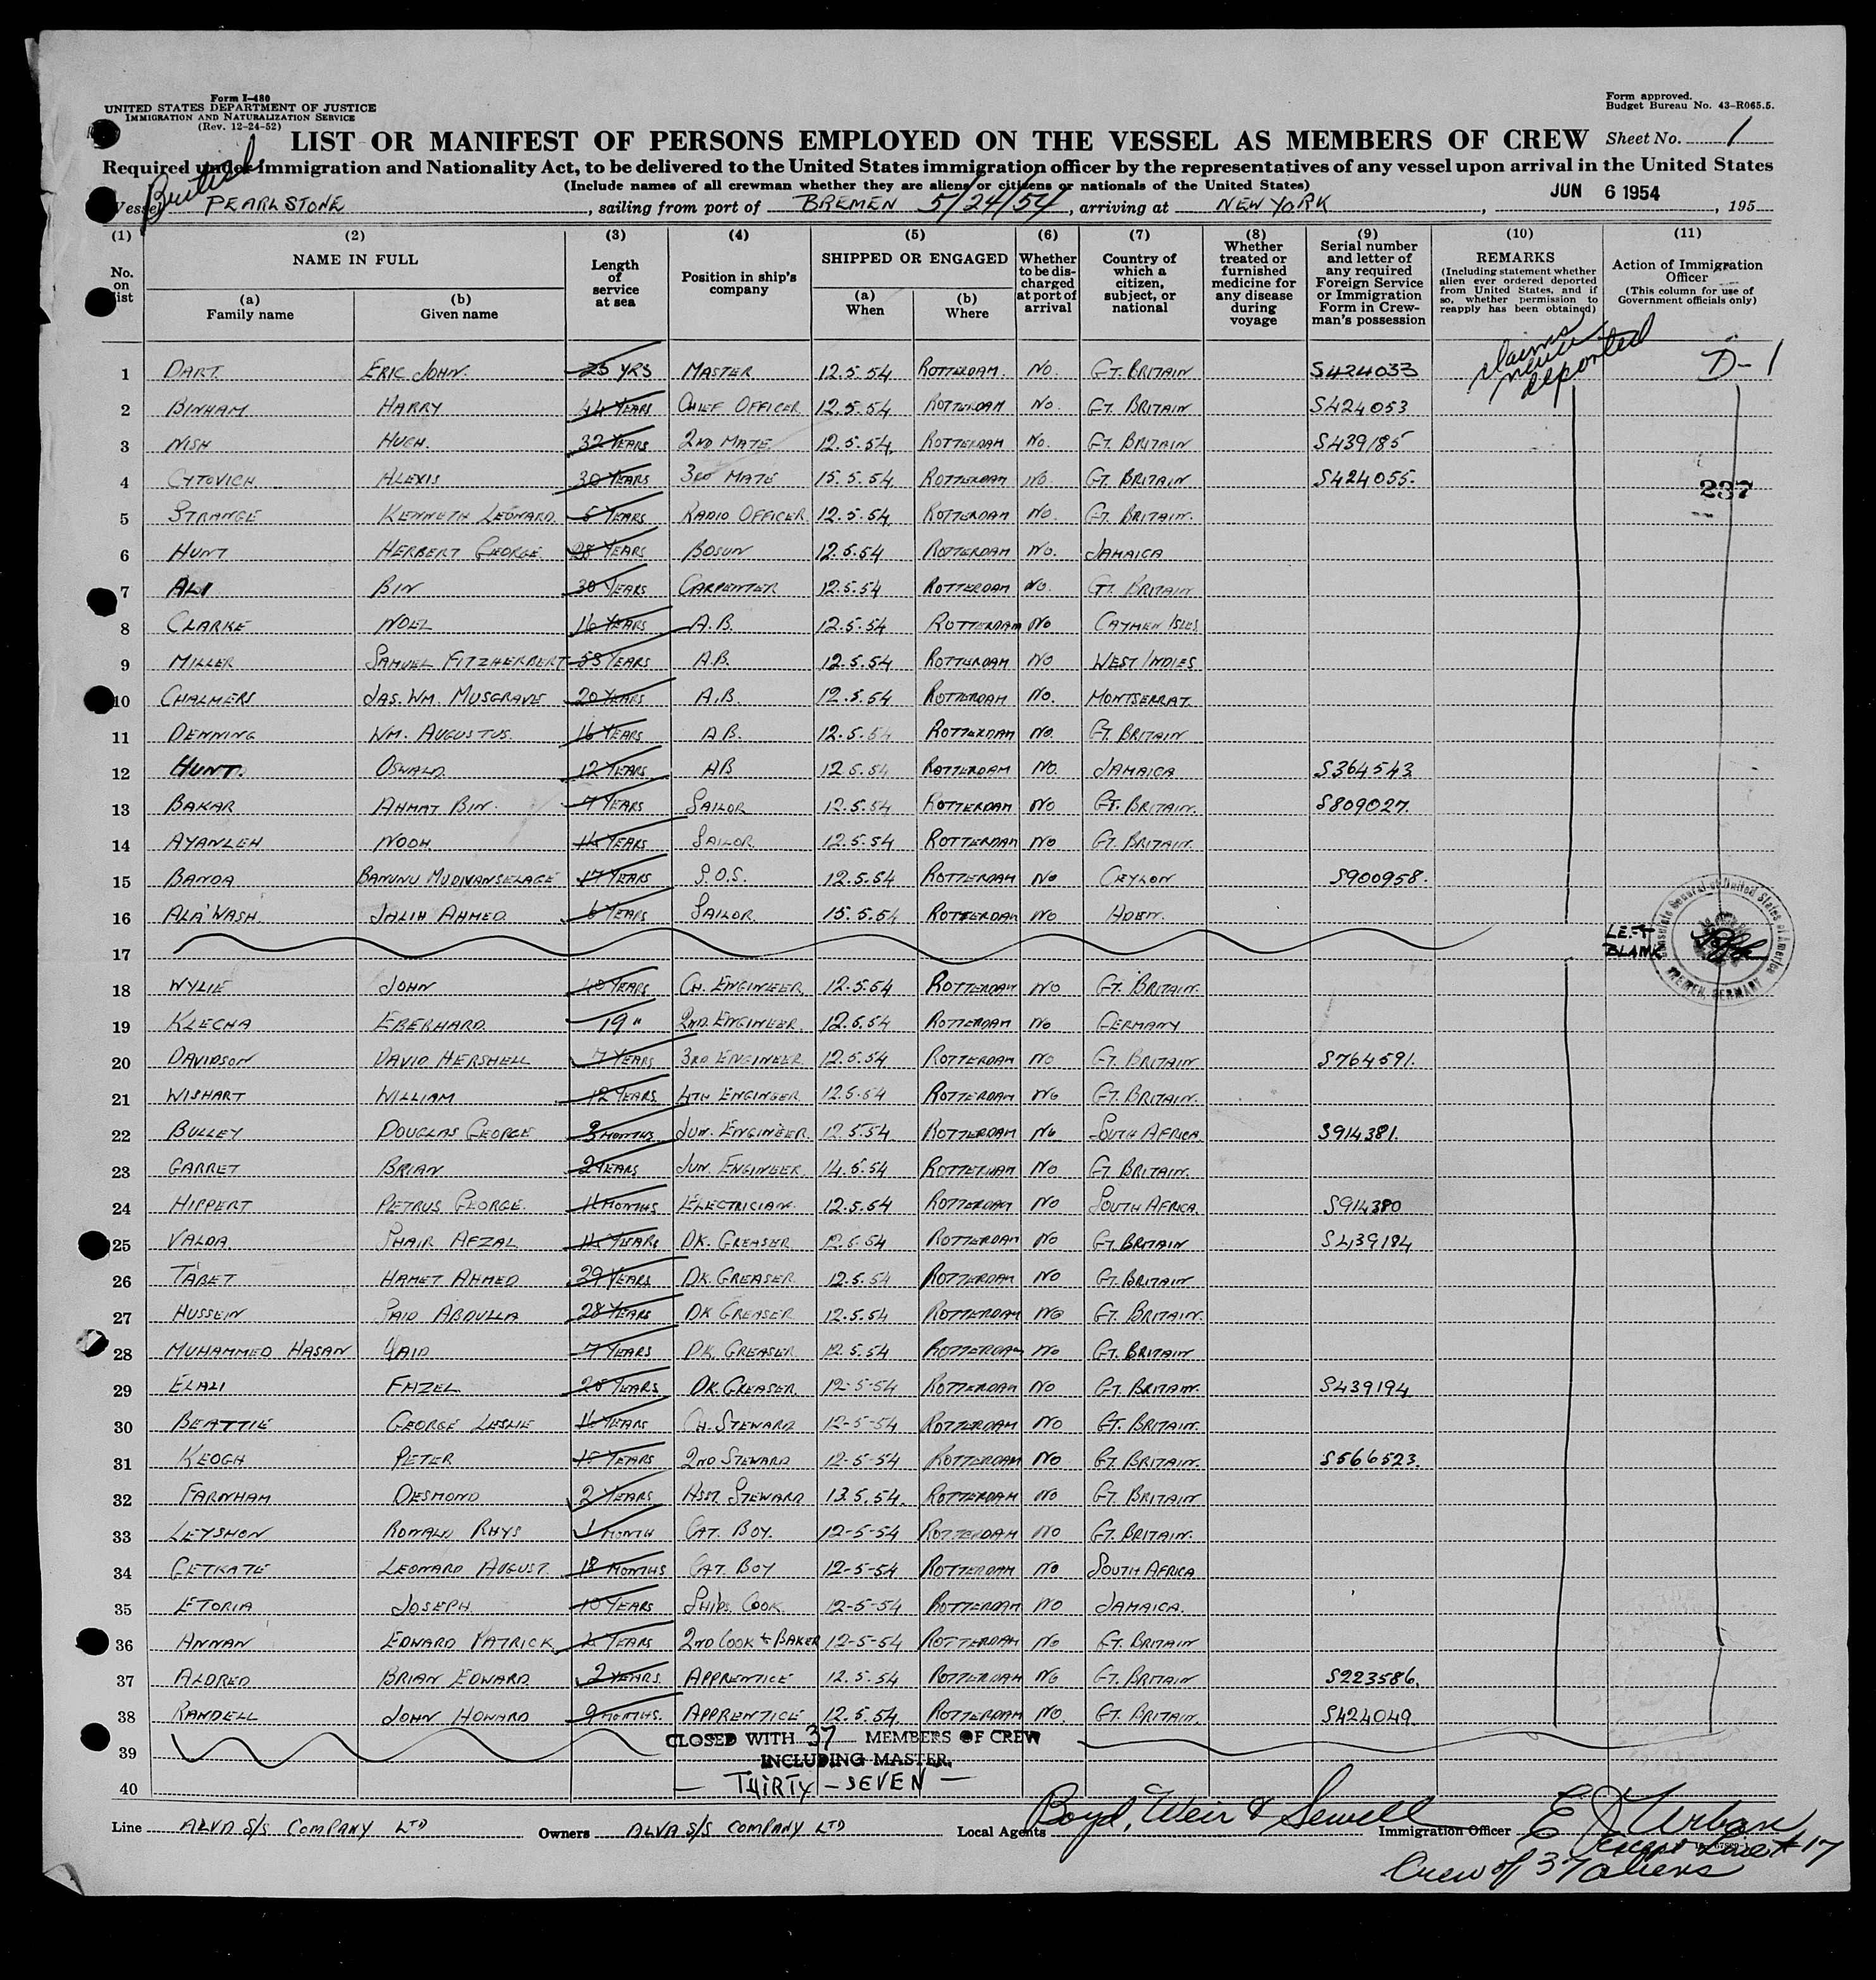 Form I-480
UNITED STATES DEPARTMENT OF JUSTICE
IMMIGRATION AND NATURALIZATION SERVICE
(Rev. 12-24-52)
Form approved.
Budget Bureau No. 43-R065.5.
LIST OR MANIFEST OF PERSONS EMPLOYED ON THE VESSEL AS MEMBERS OF CREW
Sheet No. 1
Required under Immigration and Nationality Act, to be delivered to the United States immigration officer by the representatives of any vessel upon arrival in the United States
(Include names of all crewman whether they are aliens or citizens or nationals of the United States)
British
Vessel PEARLSTONE, sailing from port of BREMEN 5/24/54, arriving at NEW YORK, JUN 6 1954, 195
(1) (2) (3) (4) (5) (6) (7) (8) (9) (10) (11)
No. on list
NAME IN FULL
(a) Family name
(b) Given name
Length of service at sea
Position in ship's company
SHIPPED OR ENGAGED
(a) When
(b) Where
Whether to be discharged at port of arrival
Country of which a citizen, subject, or national
Whether treated or furnished medicine for any disease during voyage
Serial number and letter of any required Foreign Service or Immigration Form in Crewman's possession
REMARKS
(Including statement whether alien ever ordered deported from United States, and if so, whether permission to reapply has been obtained)
Action of Immigration Officer
(This column for use of Government officials only)
claims never deported
1 DART. ERIC JOHN. 25 YRS MASTER 12.5.54 ROTTERDAM. NO. GT. BRITAIN S424033 D-1
2 BINHAM HARRY 44 YEARS CHIEF OFFICER 12.5.54 ROTTERDAM NO. GT. BRITAIN S424053
3 NISH HUGH. 32 YEARS 2ND MATE 12.5.54 ROTTERDAM NO. GT. BRITAIN S439185
4 CYTOVICH ALEXIS 30 YEARS 3RD MATE 15.5.54 ROTTERDAM NO. GT. BRITAIN S424055.
237
5 STRANGE KENNETH LEONARD. 5 YEARS RADIO OFFICER 12.5.54 ROTTERDAM NO. GT. BRITAIN.
6 HUNT HERBERT GEORGE. 28 YEARS BOSUN 12.5.54 ROTTERDAM NO. JAMAICA
7 ALI BIN 30 YEARS CARPENTER 12.5.54 ROTTERDAM NO. GT. BRITAIN
8 CLARKE NOEL 16 YEARS A.B. 12.5.54 ROTTERDAM NO CAYMEN ISLES
9 MILLER SAMUEL FITZHERBERT YEARS A.B. 12.5.54 ROTTERDAM NO WEST INDIES
10 CHALMERS JAS. WM. MUSGRAVE 20 YEARS A.B. 12.5.54 ROTTERDAM NO. MONTSERRAT
11 DENNING WM. AUGUSTUS. 16 YEARS A.B. 12.5.54 ROTTERDAM NO. GT. BRITAIN
12 HUNT. OSWALD. 12 YEARS AB 12.5.54 ROTTERDAM NO. JAMAICA S364543
13 BAKAR AHMAT BIN. 7 YEARS SAILOR 12.5.54 ROTTERDAM NO GT. BRITAIN. S809027.
14 AYANLEH NOOH. YEARS SAILOR 12.5.54 ROTTERDAM NO GT. BRITAIN.
15 BANDA BANUNU MUDIYANSELAGE 17 YEARS S.O.S. 12.5.54 ROTTERDAM NO CEYLON S900958.
16 ALA'WASH JALIH AHMED 6 YEARS SAILOR 15.5.54 ROTTERDAM NO ADEN.
17 LEFT BLANK
Consulate General of United States of America BREMEN, GERMANY
18 WYLIE JOHN 40 YEARS CH. ENGINEER. 12.5.54 ROTTERDAM NO GT. BRITAIN.
19 KLECHA EBERHARD. 19 " 2ND. ENGINEER. 12.5.54 ROTTERDAM NO GERMANY
20 DAVIDSON DAVID HERSHELL 7 YEARS 3RD ENGINEER. 12.5.54 ROTTERDAM NO GT. BRITAIN S764591.
21 WISHART WILLIAM 12 YEARS 4TH ENGINEER 12.5.54 ROTTERDAM NO GT. BRITAIN.
22 BULLEY DOUGLAS GEORGE MONTHS JUN. ENGINEER. 12.5.54 ROTTERDAM NO SOUTH AFRICA S914381.
23 GARRET BRIAN 2 YEARS JUN. ENGINEER 14.5.54 ROTTERDAM NO GT BRITAIN.
24 HIPPERT PETRUS GEORGE. 11 MONTHS ELECTRICIAN. 12.5.54 ROTTERDAM NO SOUTH AFRICA. S914380
25 VALDA. SHAIR AFZAL YEARS DK. GREASER 12.5.54 ROTTERDAM NO GT BRITAIN S439184
26 TABET HAMET AHMED 29 YEARS DK. GREASER 12.5.54 ROTTERDAM NO GT. BRITAIN
27 HUSSEIN SAID ABDULLA 28 YEARS DK GREASER 12.5.54 ROTTERDAM NO GT. BRITAIN.
28 MUHAMMED HASAN GAID 7 YEARS DK. GREASER 12.5.54 ROTTERDAM NO GT. BRITAIN
29 ELALI FAZEL YEARS DK. GREASER 12-5-54 ROTTERDAM NO GT. BRITAIN. S439194
30 BEATTIE GEORGE LESLIE 16 YEARS CH. STEWARD 12-5-54 ROTTERDAM NO GT. BRITAIN.
31 KEOGH PETER 15 YEARS 2ND STEWARD 12-5-54 ROTTERDAM NO GT. BRITAIN. S566523.
32 FARNHAM DESMOND 2 YEARS ASST. STEWARD 13.5.54. ROTTERDAM NO GT. BRITAIN
33 LEYSHON RONALD RHYS 1 MONTH CAT. BOY. 12-5-54 ROTTERDAM NO GT. BRITAIN.
34 GETKATE LEONARD AUGUST. 18 MONTHS CAT. BOY 12-5-54 ROTTERDAM NO SOUTH AFRICA
35 ETORIA JOSEPH. 10 YEARS SHIPS COOK. 12-5-54 ROTTERDAM NO JAMAICA.
36 ANNAN EDWARD PATRICK YEARS 2ND COOK & BAKER 12-5-54 ROTTERDAM NO GT. BRITAIN
37 ALDRED BRIAN EDWARD. 2 YEARS. APPRENTICE 12.5.54 ROTTERDAM NO GT. BRITAIN S223586.
38 RANDELL JOHN HOWARD 9 MONTHS. APPRENTICE 12.5.54 ROTTERDAM NO. GT. BRITAIN. S424049.
CLOSED WITH 37 MEMBERS OF CREW
39 INCLUDING MASTER.
40 — THIRTY - SEVEN —
Line ALVA S/S COMPANY LTD Owners ALVA S/S COMPANY LTD Local Agents Boyd, Weir & Sewell Immigration Officer E J Urban
except Line # 17
Crew of 37 aliens